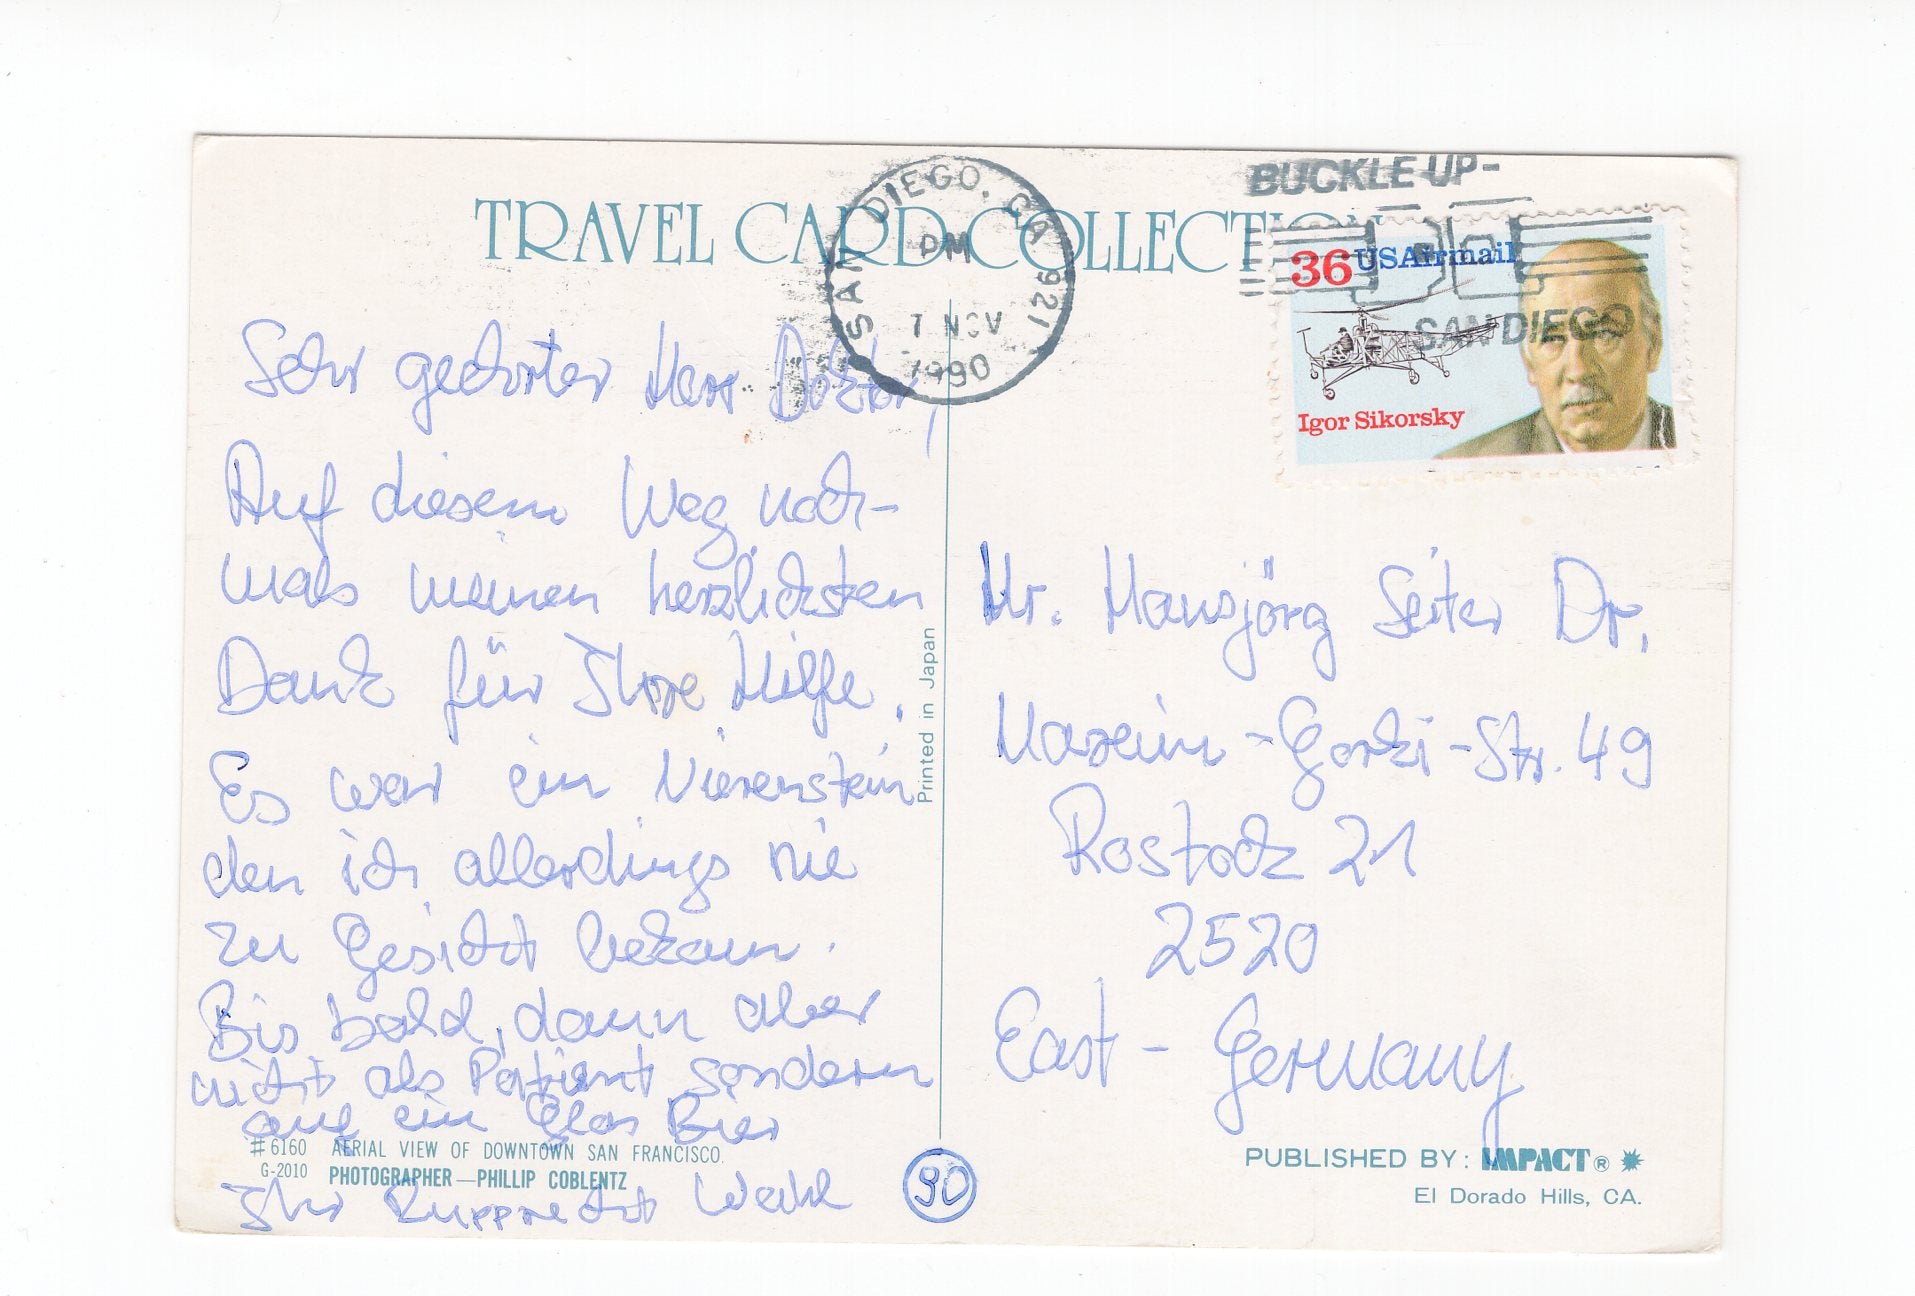 TRAVEL CARD COLLECTION
SAN DIEGO, CA 921
PM
7 NOV
1990
BUCKLE UP-
SAN DIEGO
36 USAirmail
Igor Sikorsky
Sehr geehrter Herr Doktor,
Auf diesem Weg noch-
mals meinen herzlichsten
Dank für Ihre Hilfe.
Es war ein Nierenstein
den ich allerdings nie
zu Gesicht bekam.
Bis bald, dann aber
nicht als Patient sondern
auf ein Glas Bier
Ihr Rupprecht Wahl
Printed in Japan
Hr. Hansjörg Seiter Dr.
Maxim-Gorki-Str. 49
Rostock 21
2520
East-Germany
#6160 AERIAL VIEW OF DOWNTOWN SAN FRANCISCO.
G-2010 PHOTOGRAPHER—PHILLIP COBLENTZ
90
PUBLISHED BY: IMPACT®
El Dorado Hills, CA.